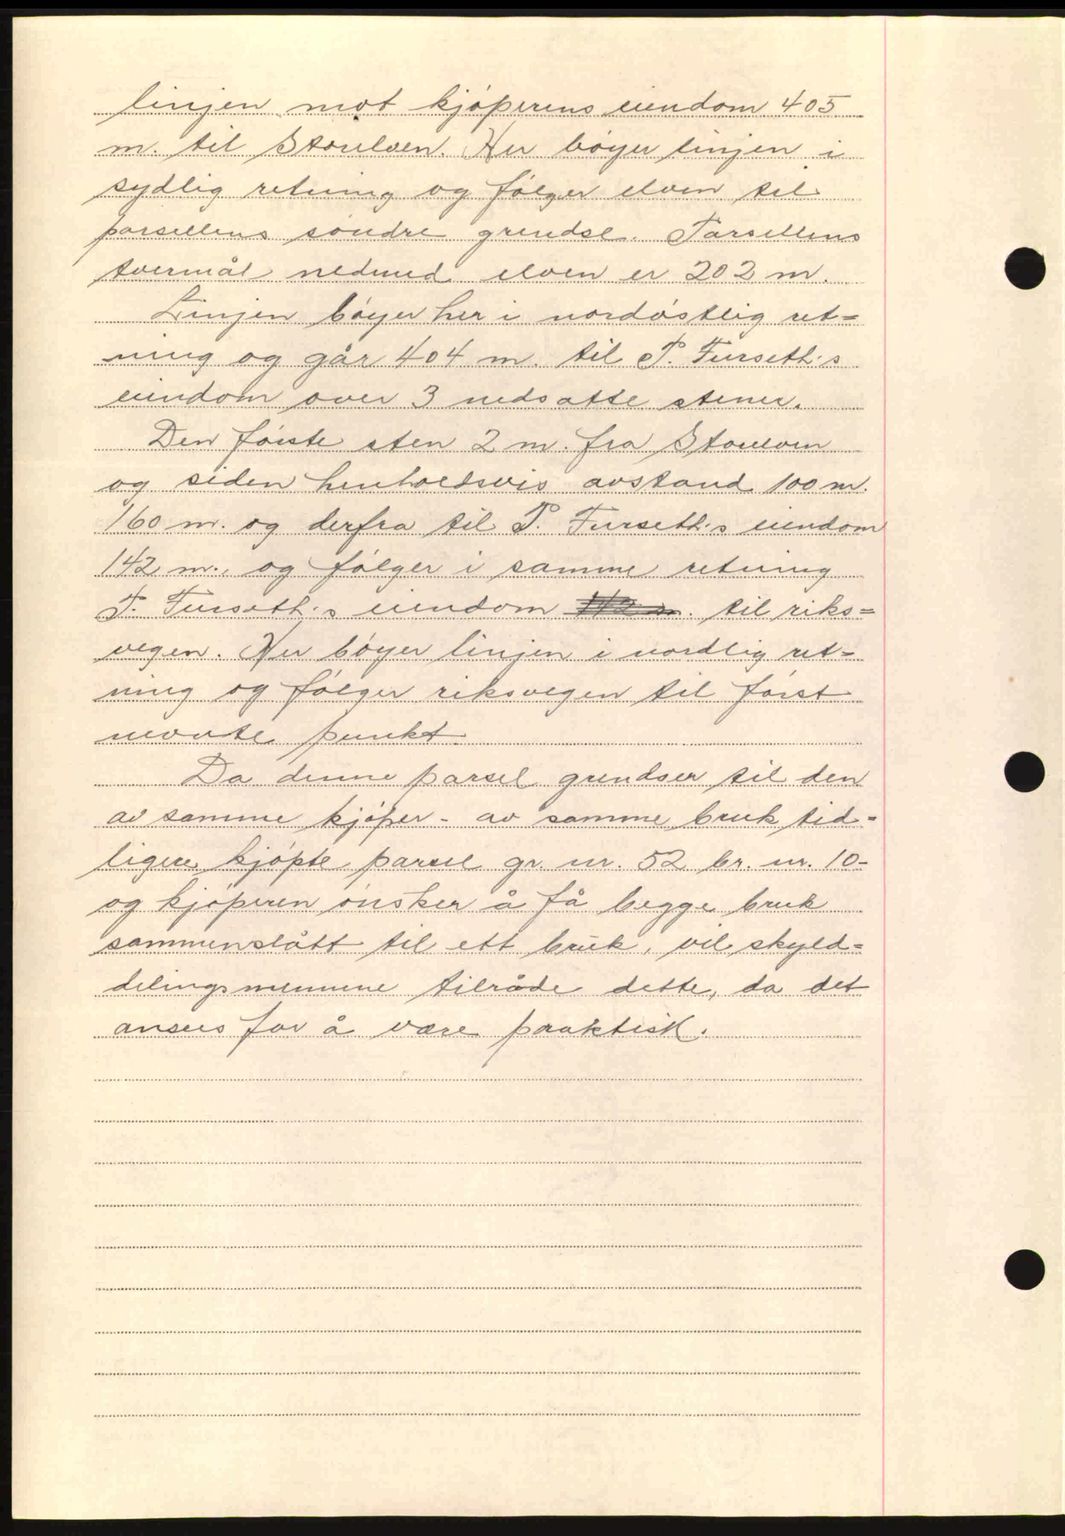 linjen mot kjøperens eiendom 405
m. til Storelven. Her bøyer linjen i
sydlig retning og følger elven til
parsellens søndre grendse. Parsellens
tvermål nedmed elven er 202 m.
Linjen bøyer her i nordøstlig ret=
ning og går 404 m. til P. Furseth's
eiendom over 3 nedsatte stener.
Den første sten 2 m. fra Storelven
og siden henholdsvis avstand 100 m.
160 m. og derfra til P. Furseth's eiendom
142 m., og følger i samme retning
P. Furseth's eiendom 112 m. til riks=
vegen. Her bøyer linjen i nordlig ret=
ning og følger riksvegen til først
nevnte punkt.
Da denne parsel grendser til den
av samme kjøper - av samme bruk tid=
ligere kjøpte parsel gr. nr. 52 br. nr. 10-
og kjøperen ønsker å få begge bruk
sammenslått til ett bruk, vil skyld=
delingsmennene tilråde dette, da det
ansees for å være praktisk.